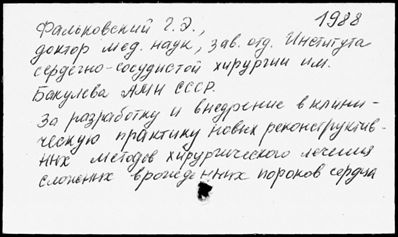 Фальковский Г.Э., 1988
доктор мед. наук, зав. отд. Института
сердечно-сосудистой хирургии им.
Бакулева АМН СССР.
За разработку и внедрение в клини-
ческую практику новых реконструктив-
ных методов хирургического лечения
сложных врожденных пороков сердца